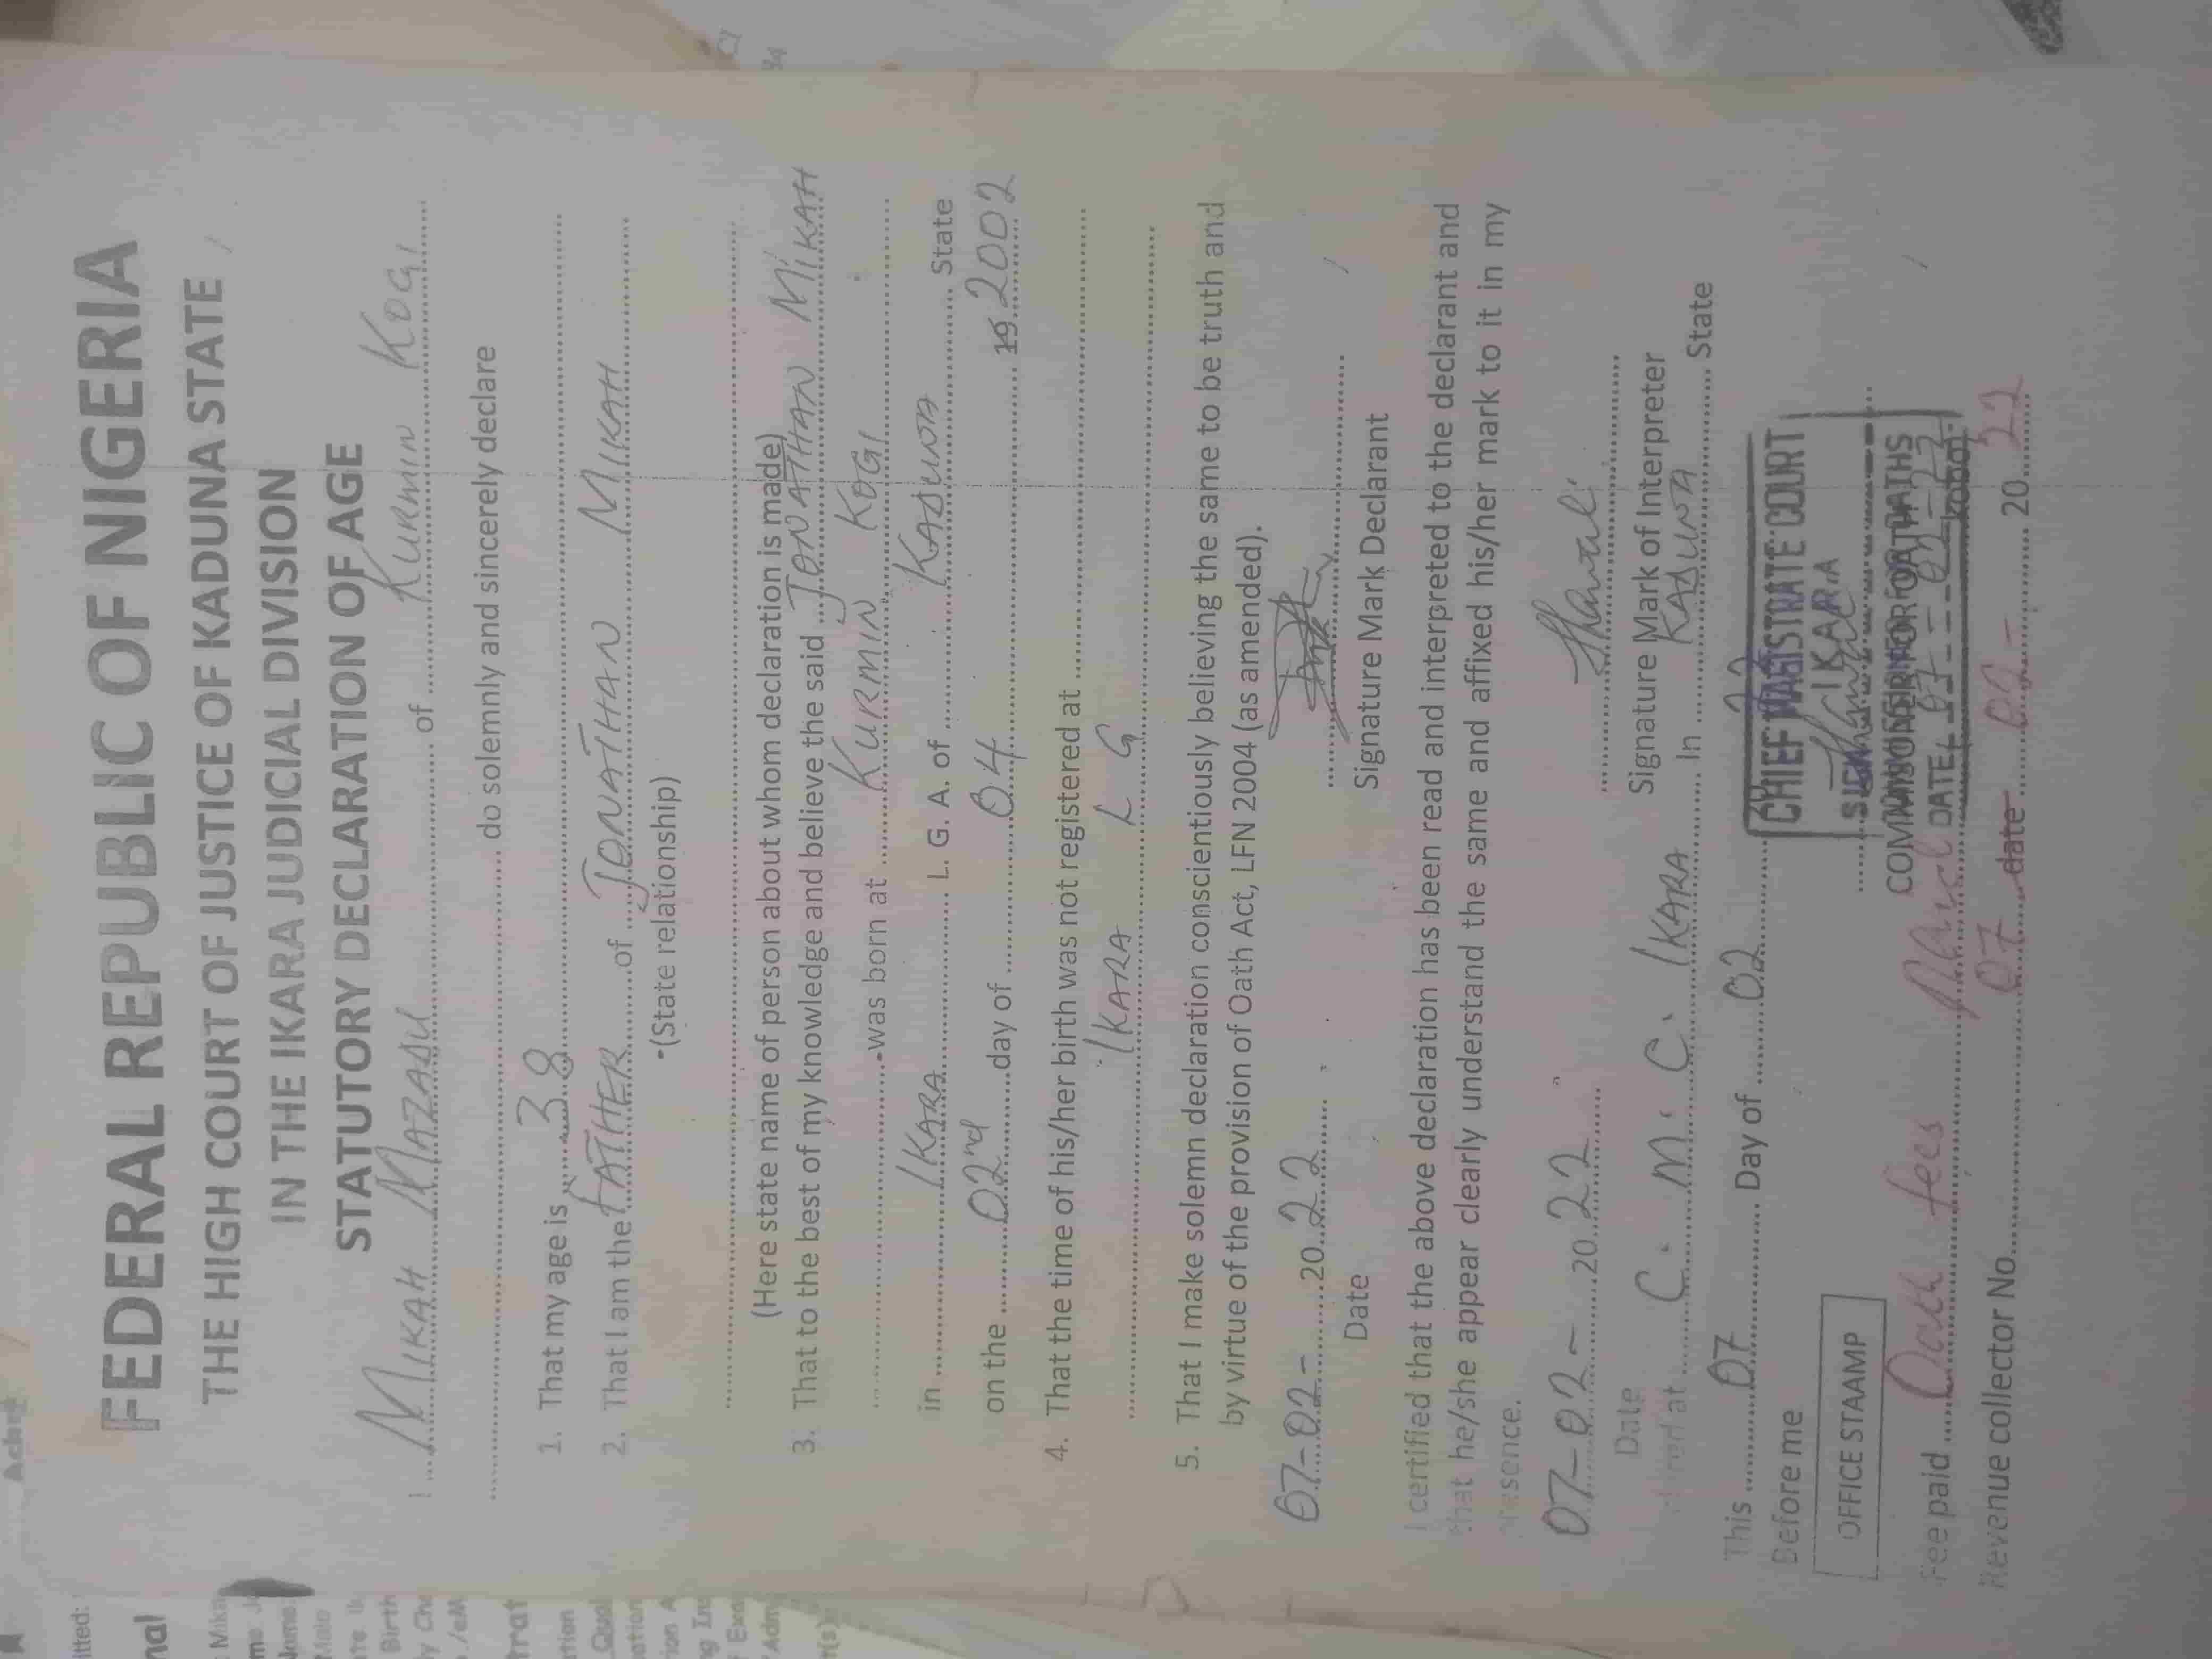 FEDERAL REPUBLIC OF NIGERIA
THE HIGH COURT OF JUSTICE OF KADUNA STATE
IN THE IKARA JUDICIAL DIVISION
STATUTORY DECLARATION OF AGE
I ... MIKAH MAZADU ... of ... KURMIN KOGI
... do solemnly and sincerely declare
1. That my age is ... 38
2. That I am the FATHER ... of ... JONATHAN MIKAH
-(State relationship)
(Here state name of person about whom declaration is made)
3. That to the best of my knowledge and believe the said ... JONATHAN MIKAH
... -was born at ... KURMIN KOGI
in ... IKARA ... L. G. A. of ... KADUNA ... State
on the ... 02nd ... day of ... 04 ... 19 2002
4. That the time of his/her birth was not registered at ...
IKARA L G
5. That I make solemn declaration conscientiously believing the same to be truth and
by virtue of the provision of Oath Act, LFN 2004 (as amended).
07-02- 20 22
Date
Signature Mark Declarant
I certified that the above declaration has been read and interpreted to the declarant and
that he/she appear clearly understand the same and affixed his/her mark to it in my
presence.
07-02- 20 22
Date
Signature Mark of Interpreter
at ... C. M. C. IKARA ... In ... KADUNA ... State
This ... 07 ... Day of ... 02 ... 20 22
Before me
CHIEF MAGISTRATE COURT
IKARA
SIGN
COMMISSIONER FOR OATHS
DATE 07-02-22
OFFICE STAAMP
Fee paid ... Oath fees
Revenue collector No. ... 07 date ... 02- 20 22